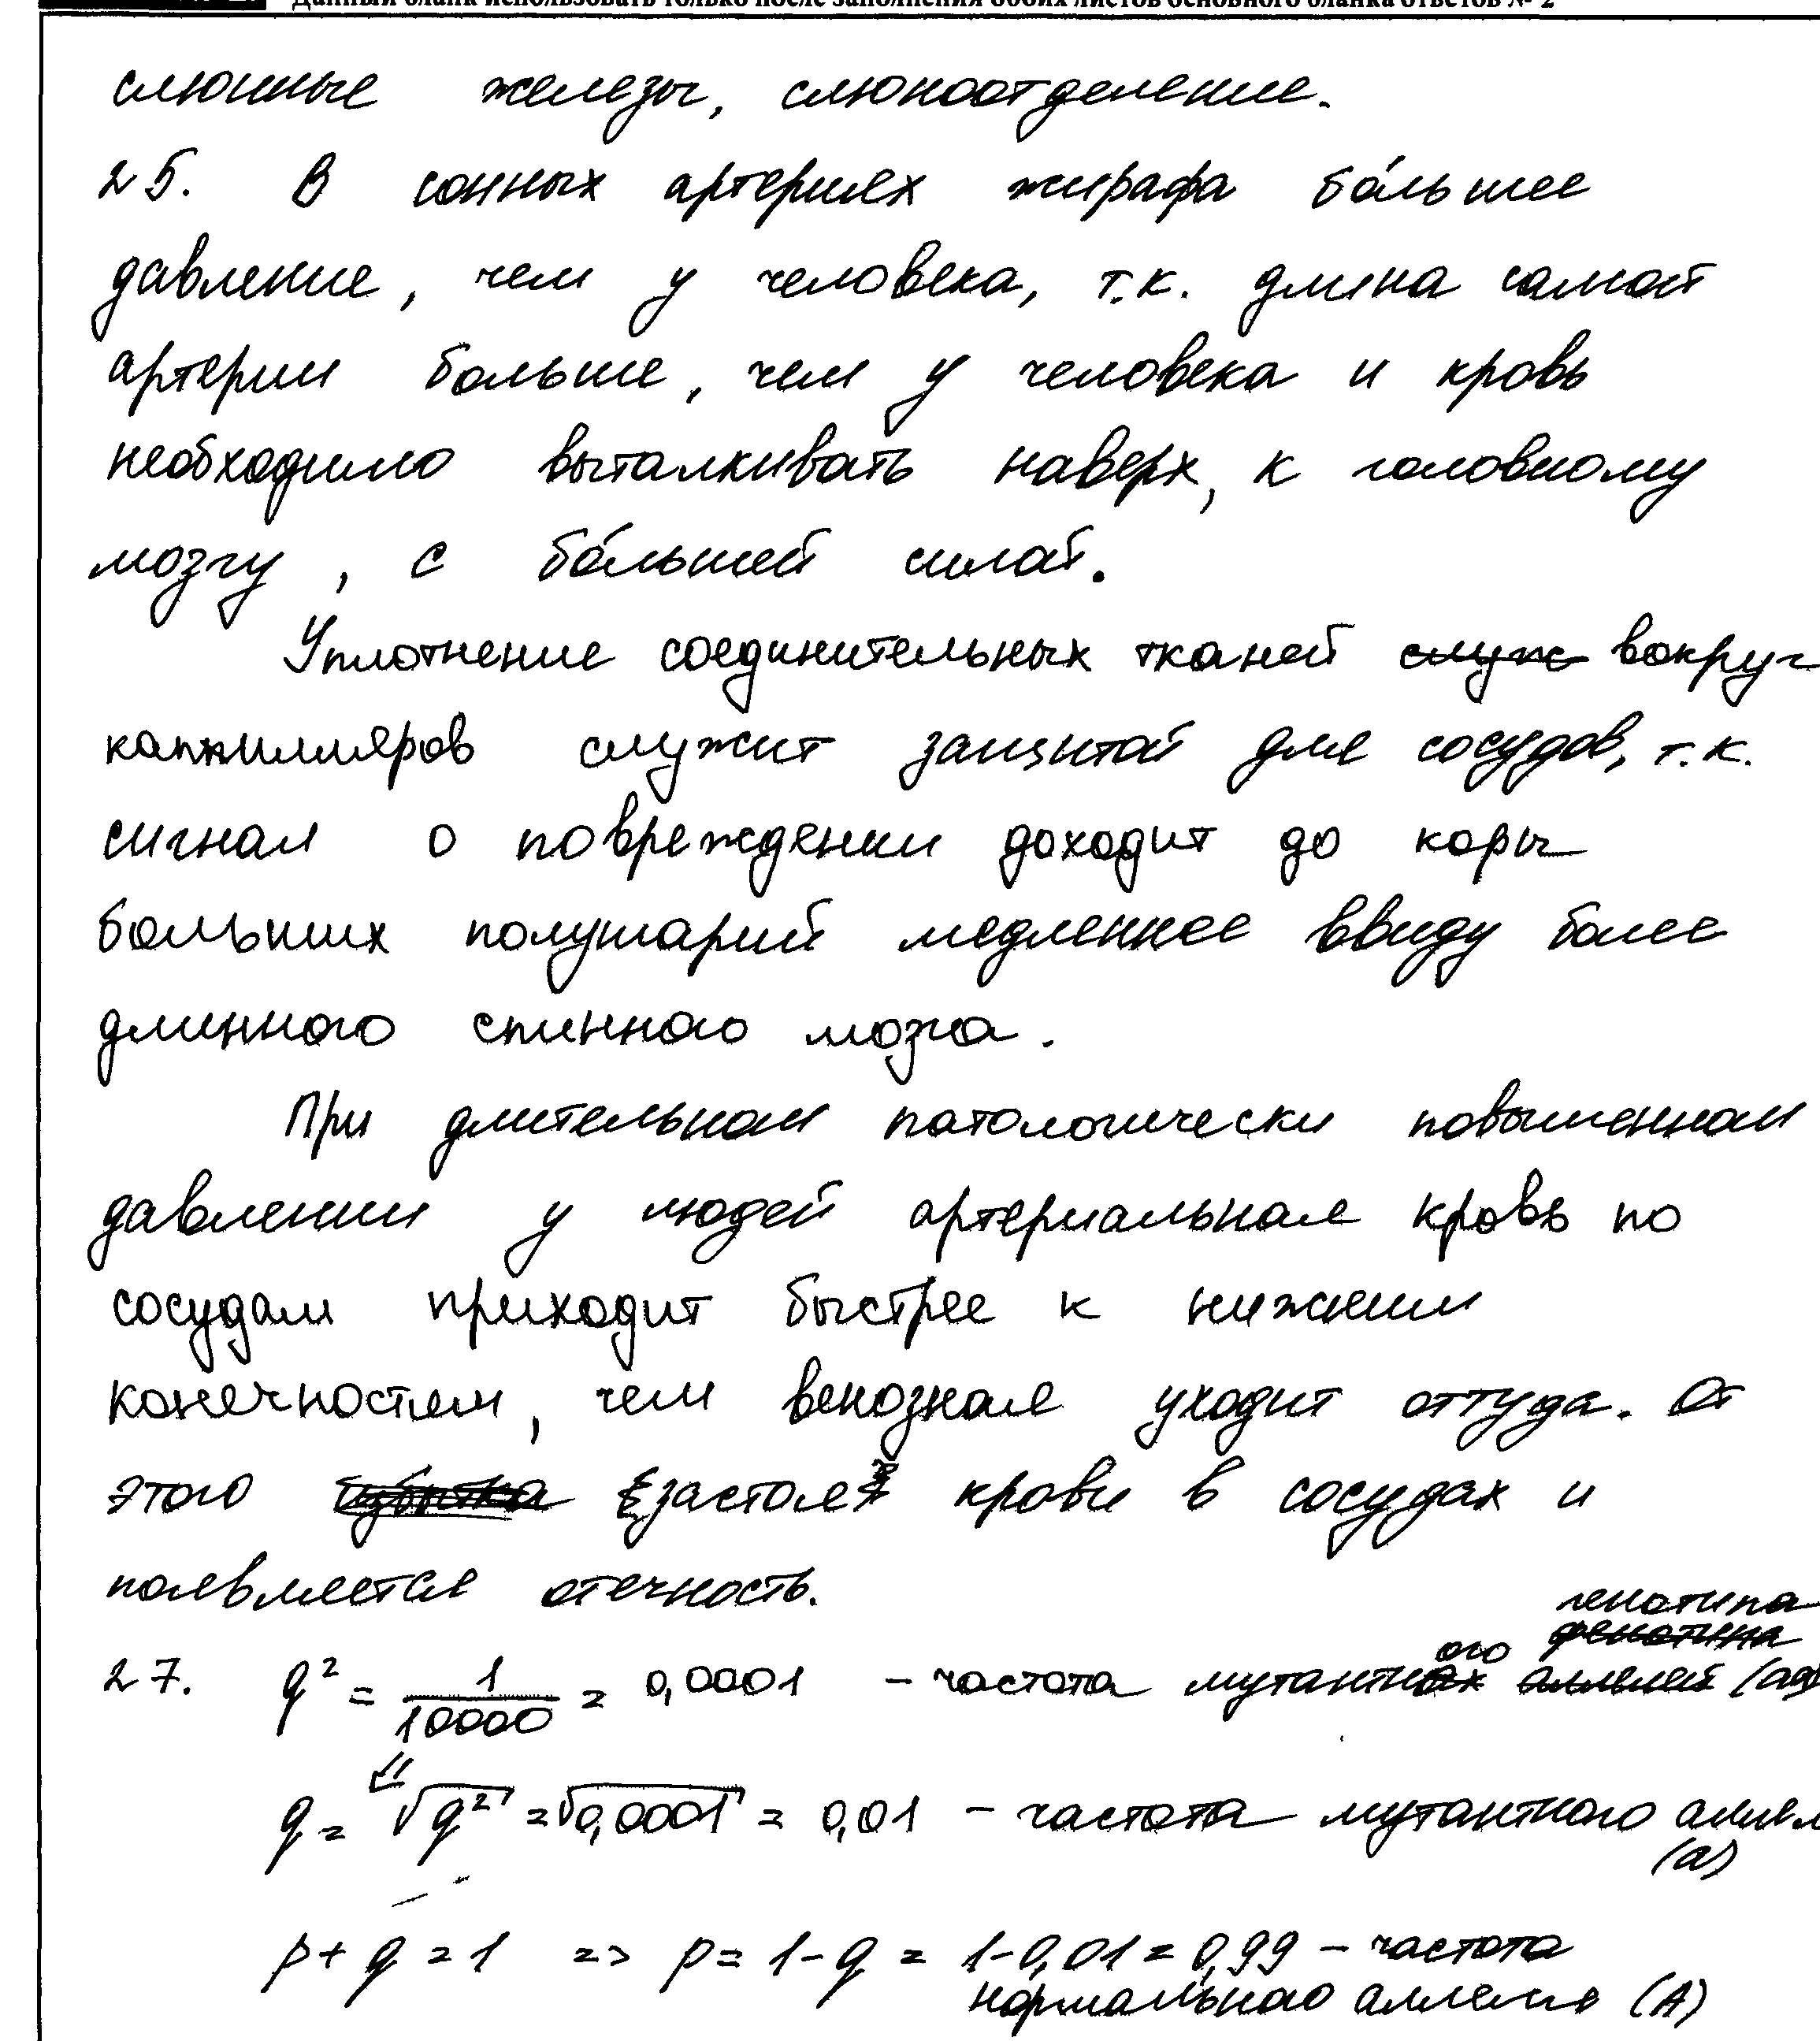 Данный бланк использовать только после заполнения обоих листов основного бланка ответов № 2
слюнные железы, слюноотделение.
25. В сонных артериях жирафа бо́льшее
давление, чем у человека, т.к. длина самой
артерии больше, чем у человека и кровь
необходимо выталкивать наверх, к головному
мозгу, с бо́льшей силой.
Уплотнение соединительных тканей служ вокруг
капилляров служит защитой для сосудов, т.к.
сигнал о повреждении доходит до коры
больших полушарий медленнее ввиду более
длинного спинного мозга.
При длительном патологически повышенном
давлении у людей артериальная кровь по
сосудам приходит быстрее к нижним
конечностям, чем венозная уходит оттуда. От
этого избытка застоя крови в сосудах и
появляется отечность.
генотипа
ого фенотипа
27. q² = 1/10000 = 0,0001 – частота мутантных аллелей (aa)
⇙
q = √q² = √0,0001 = 0,01 – частота мутантного аллел
(a)
p + q = 1 => p = 1 - q = 1 - 0,01 = 0,99 – частота
нормального аллеля (A)